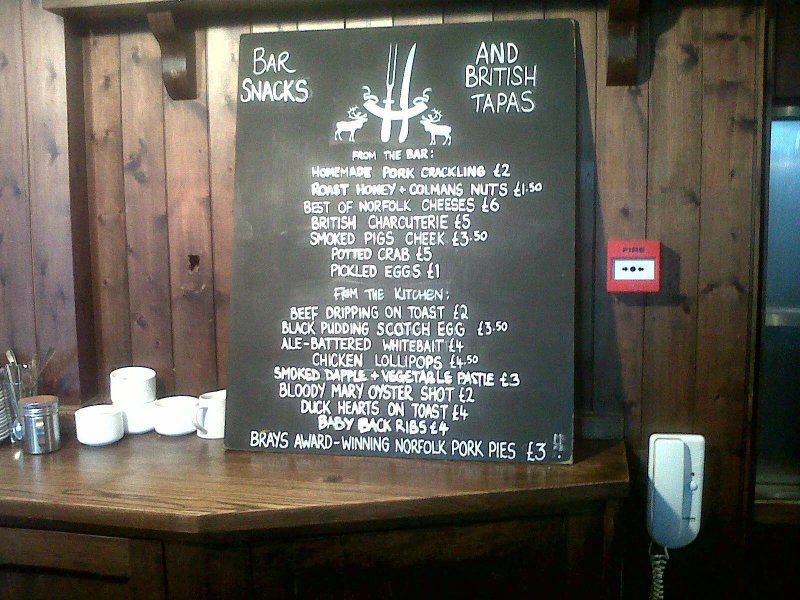 BAR
SNACKS
AND
BRITISH
TAPAS
FROM THE BAR:
HOMEMADE PORK CRACKLING £2
ROAST HONEY + COLMANS NUTS £1.50
BEST OF NORFOLK CHEESES £6
BRITISH CHARCUTERIE £5
SMOKED PIGS CHEEK £3.50
POTTED CRAB £5
PICKLED EGGS £1
FROM THE KITCHEN:
BEEF DRIPPING ON TOAST £2
BLACK PUDDING SCOTCH EGG £3.50
ALE-BATTERED WHITEBAIT £4
CHICKEN LOLLIPOPS £4.50
SMOKED DAPPLE + VEGETABLE PASTIE £3
BLOODY MARY OYSTER SHOT £2
DUCK HEARTS ON TOAST £4
BABY BACK RIBS £4
BRAYS AWARD-WINNING NORFOLK PORK PIES £3
FIRE